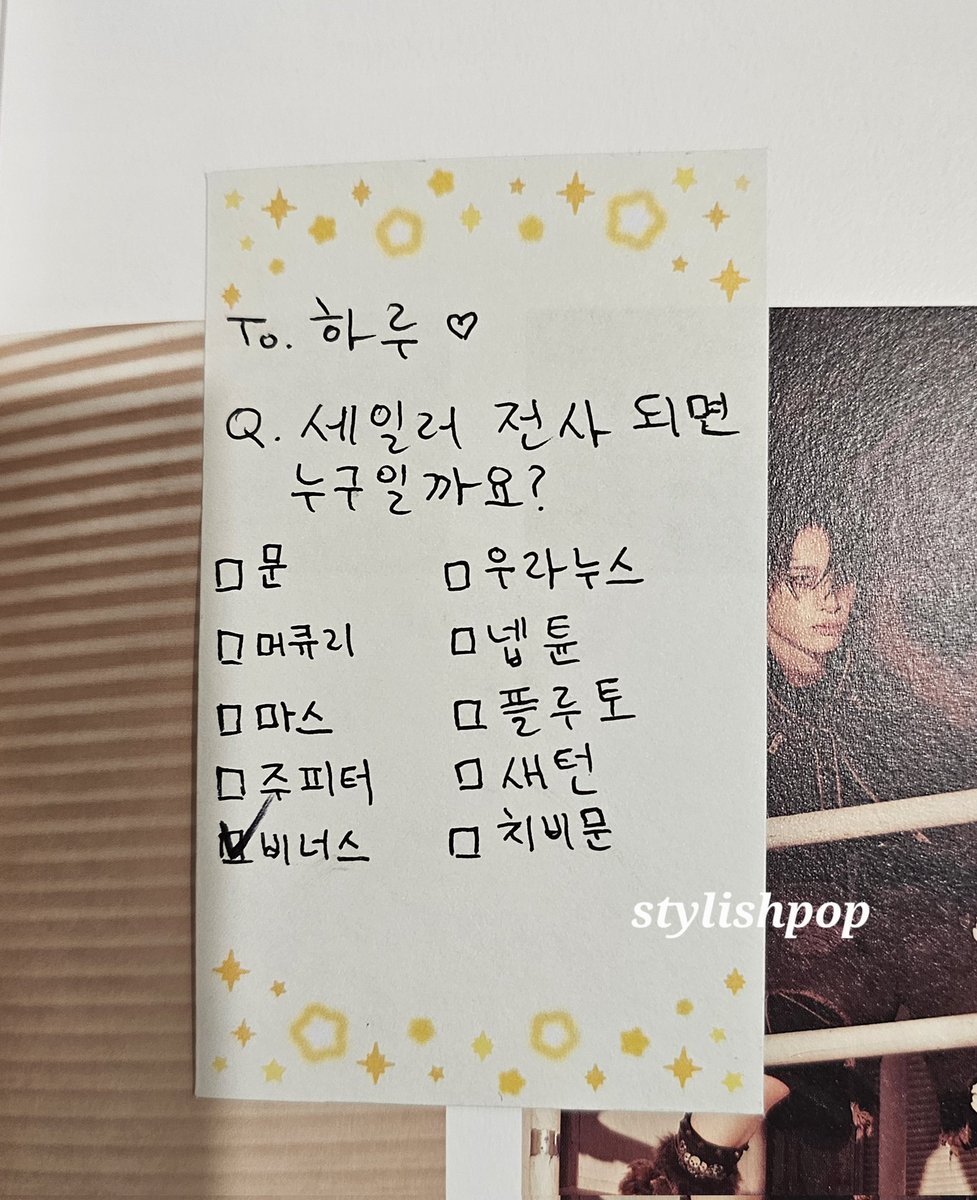 To. 하루 ♡
Q. 세일러 전사 되면
누구일까요?
□ 문
□ 머큐리
□ 마스
□ 주피터
☑ 비너스
□ 우라누스
□ 넵튠
□ 플루토
□ 새턴
□ 치비문
stylishpop